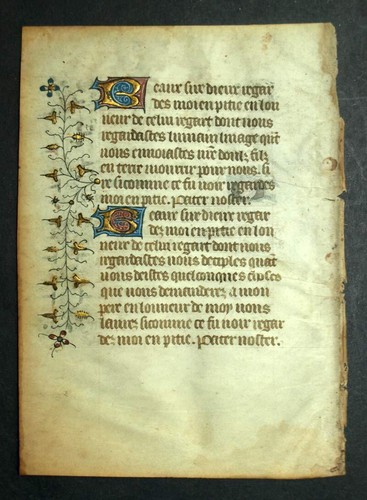 Beaux sire dieux regar
des moi en pitie en lon
neur de celui regart dont vous
regardastes lumain linage qnt
vous envoiastes vre doulz filz
en terre mourir pour nous. si
re si comme ce fu voir regardes
moi en pitie. Pater noster.
Beaux sire dieux regar
dez moi en pitie en lon
neur de celui regart dont vous
regardastes vous deciples quat
vous deistes quelconques choses
que vous demanderez a mon
pere en lonneur de moy vous
laurez si comme ce fu voir regar
dez moi en pitie. Pater noster.